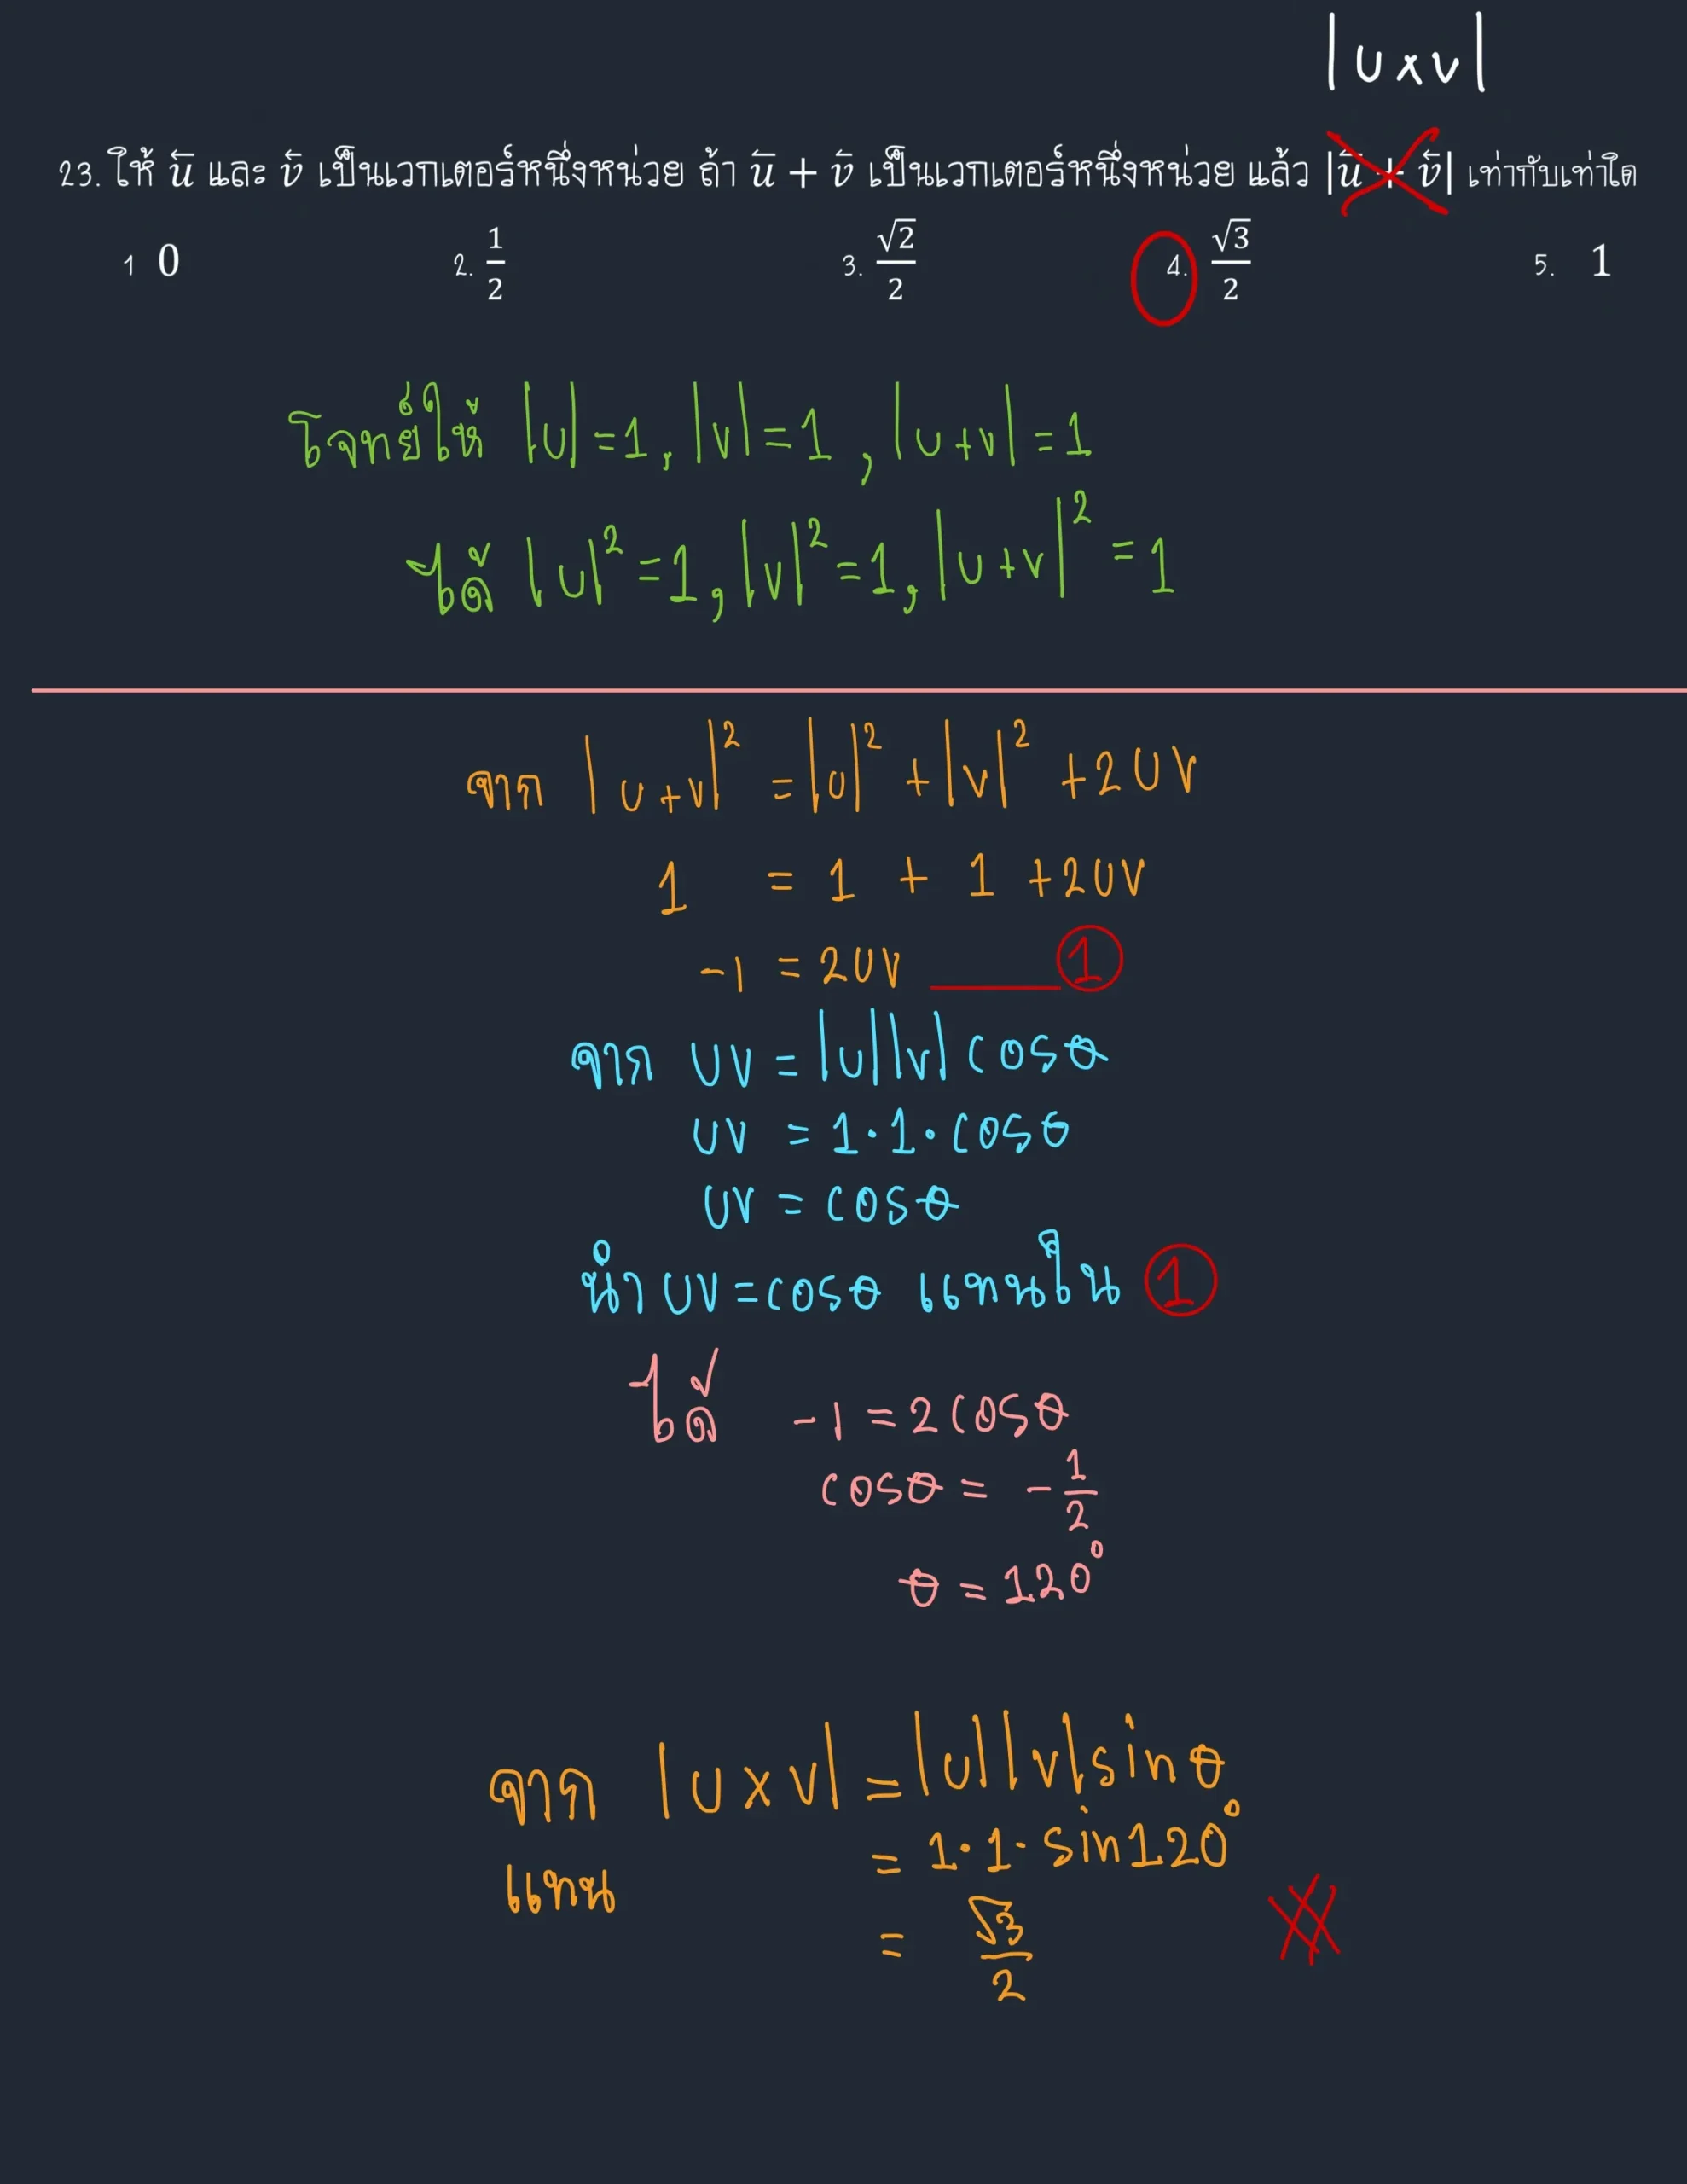 |u×v|
23. ให้ ū และ v̄ เป็นเวกเตอร์หนึ่งหน่วย ถ้า ū + v̄ เป็นเวกเตอร์หนึ่งหน่วย แล้ว |ū + v̄| เท่ากับเท่าใด
1 0 2. 1/2 3. √2/2 4. √3/2 5. 1
โจทย์ให้ |u|=1, |v|=1, |u+v|=1
ได้ |u|²=1, |v|²=1, |u+v|²=1
จาก |u+v|² = |u|² + |v|² +2uv
1 = 1 + 1 +2uv
-1 = 2uv ____ ①
จาก uv = |u||v| cosθ
uv = 1·1·cosθ
uv = cosθ
นำ uv=cosθ แทนใน ①
ได้ -1 = 2cosθ
cosθ = -1/2
θ = 120°
จาก |u×v| = |u||v|sinθ
แทน = 1·1·sin120°
= √3/2